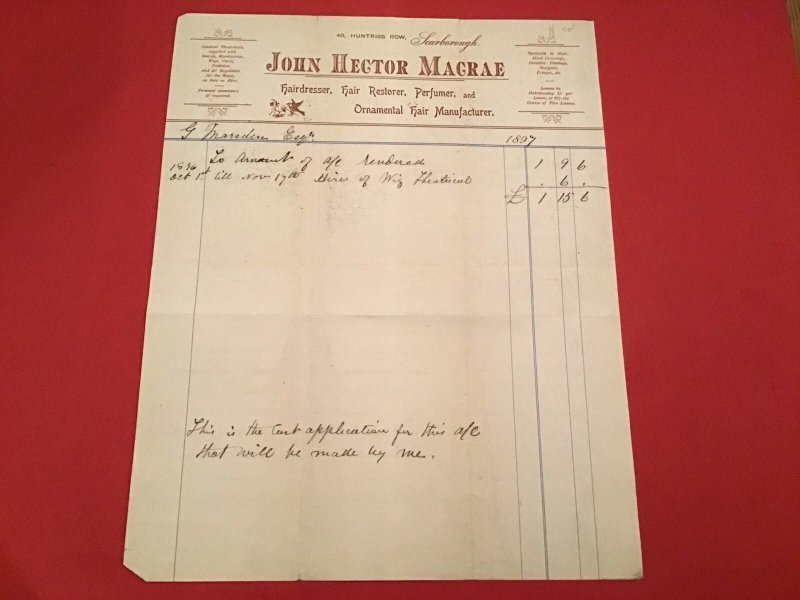 40, HUNTRISS ROW, Scarborough.
JOHN HECTOR MACRAE
Hairdresser, Hair Restorer, Perfumer, and
Ornamental Hair Manufacturer.
Amateur Theatricals
supplied with
Beards, Moustaches,
Wigs, Curls,
and all Requisites
for the Stage,
on Sale or Hire.
Personal attendance
if required.
Specialty in Hair,
Head Coverings,
Invisible Partings,
Scalpets,
Fringes, &c.
Lessons in
Hairdressing
Course of Five Lessons.
G Marsden Esqr 1897
To Amount of a/c rendered 1 9 6
1896 Oct 1st till Nov 17th Hire of Wig Theatrical . 6 .
£ 1 15 6
This is the last application for this a/c
that will be made by me.